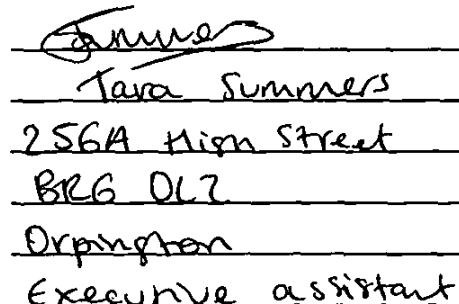 Tara Summers
256A High Street
BR6 0LZ
Orpington
Executive assistant